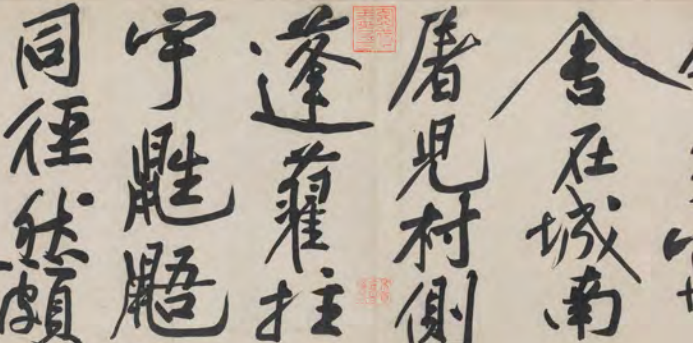 舍在城南
屠児村側
蓬藋拄
宇鼪鼯
同徑然頗